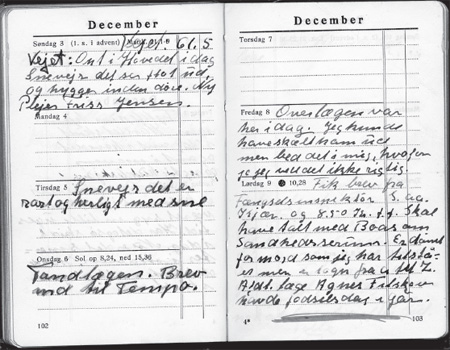 December
Søndag 3 (1. s. i advent) Vejet 61.5
Vejet: Ont i Hovedet i dag
Snevejr det ser flot ud,
og hygger inden døre. Ny
Plejer Friss Jensen.
Mandag 4
Tirsdag 5 Snevejr det er
rart og herligt med sne
Onsdag 6 Sol op 8,24, ned 15,36
Tandlægen. Brev
ind til Tempo.
102
December
Torsdag 7
Fredag 8 Overlægen var
her i dag. Jeg kunde
have skælt ham ud
men bed det i mig, hvorfor
jeg ved det ikke rigtig.
Lørdag 9 10,28 Fik brev fra
Fængselsinspektør S. Aa.
og 8.50 Skal
have talt med Boas om
Sandhedsserum. Er dømt
for mord som jeg har tilstå-
et men er løgn fra A til Z.
Afdl. læge Agnes
havde fødselsdag i går.
4* 103